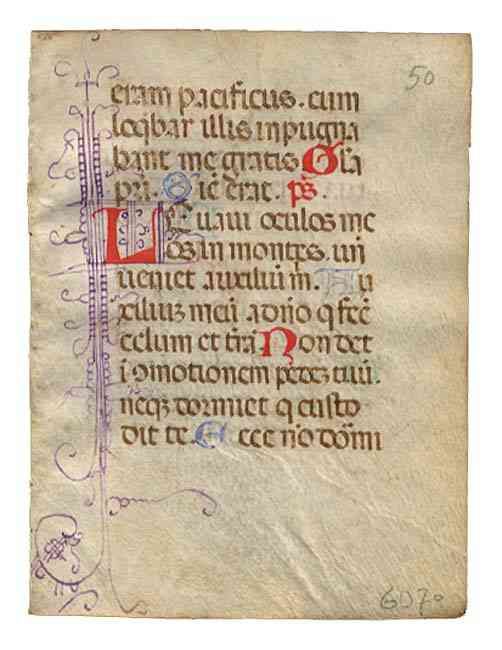 50
eram pacificus. cum
loq̄bar illis inpugna
bant me gratis Gl̄a
pr̄i. S ic̄ erat. ps̄.
L Euaui oculos me
os in montes. un̄
ueniet auxiliū m. A u
xiliuʒ meū a dn̄o q fec̄
celum et tr̄ā Non det
ī ꝯmotionem pedeʒ tuū.
neqʒ dormiet q custo
dit te. E cce nō dormi
GD70